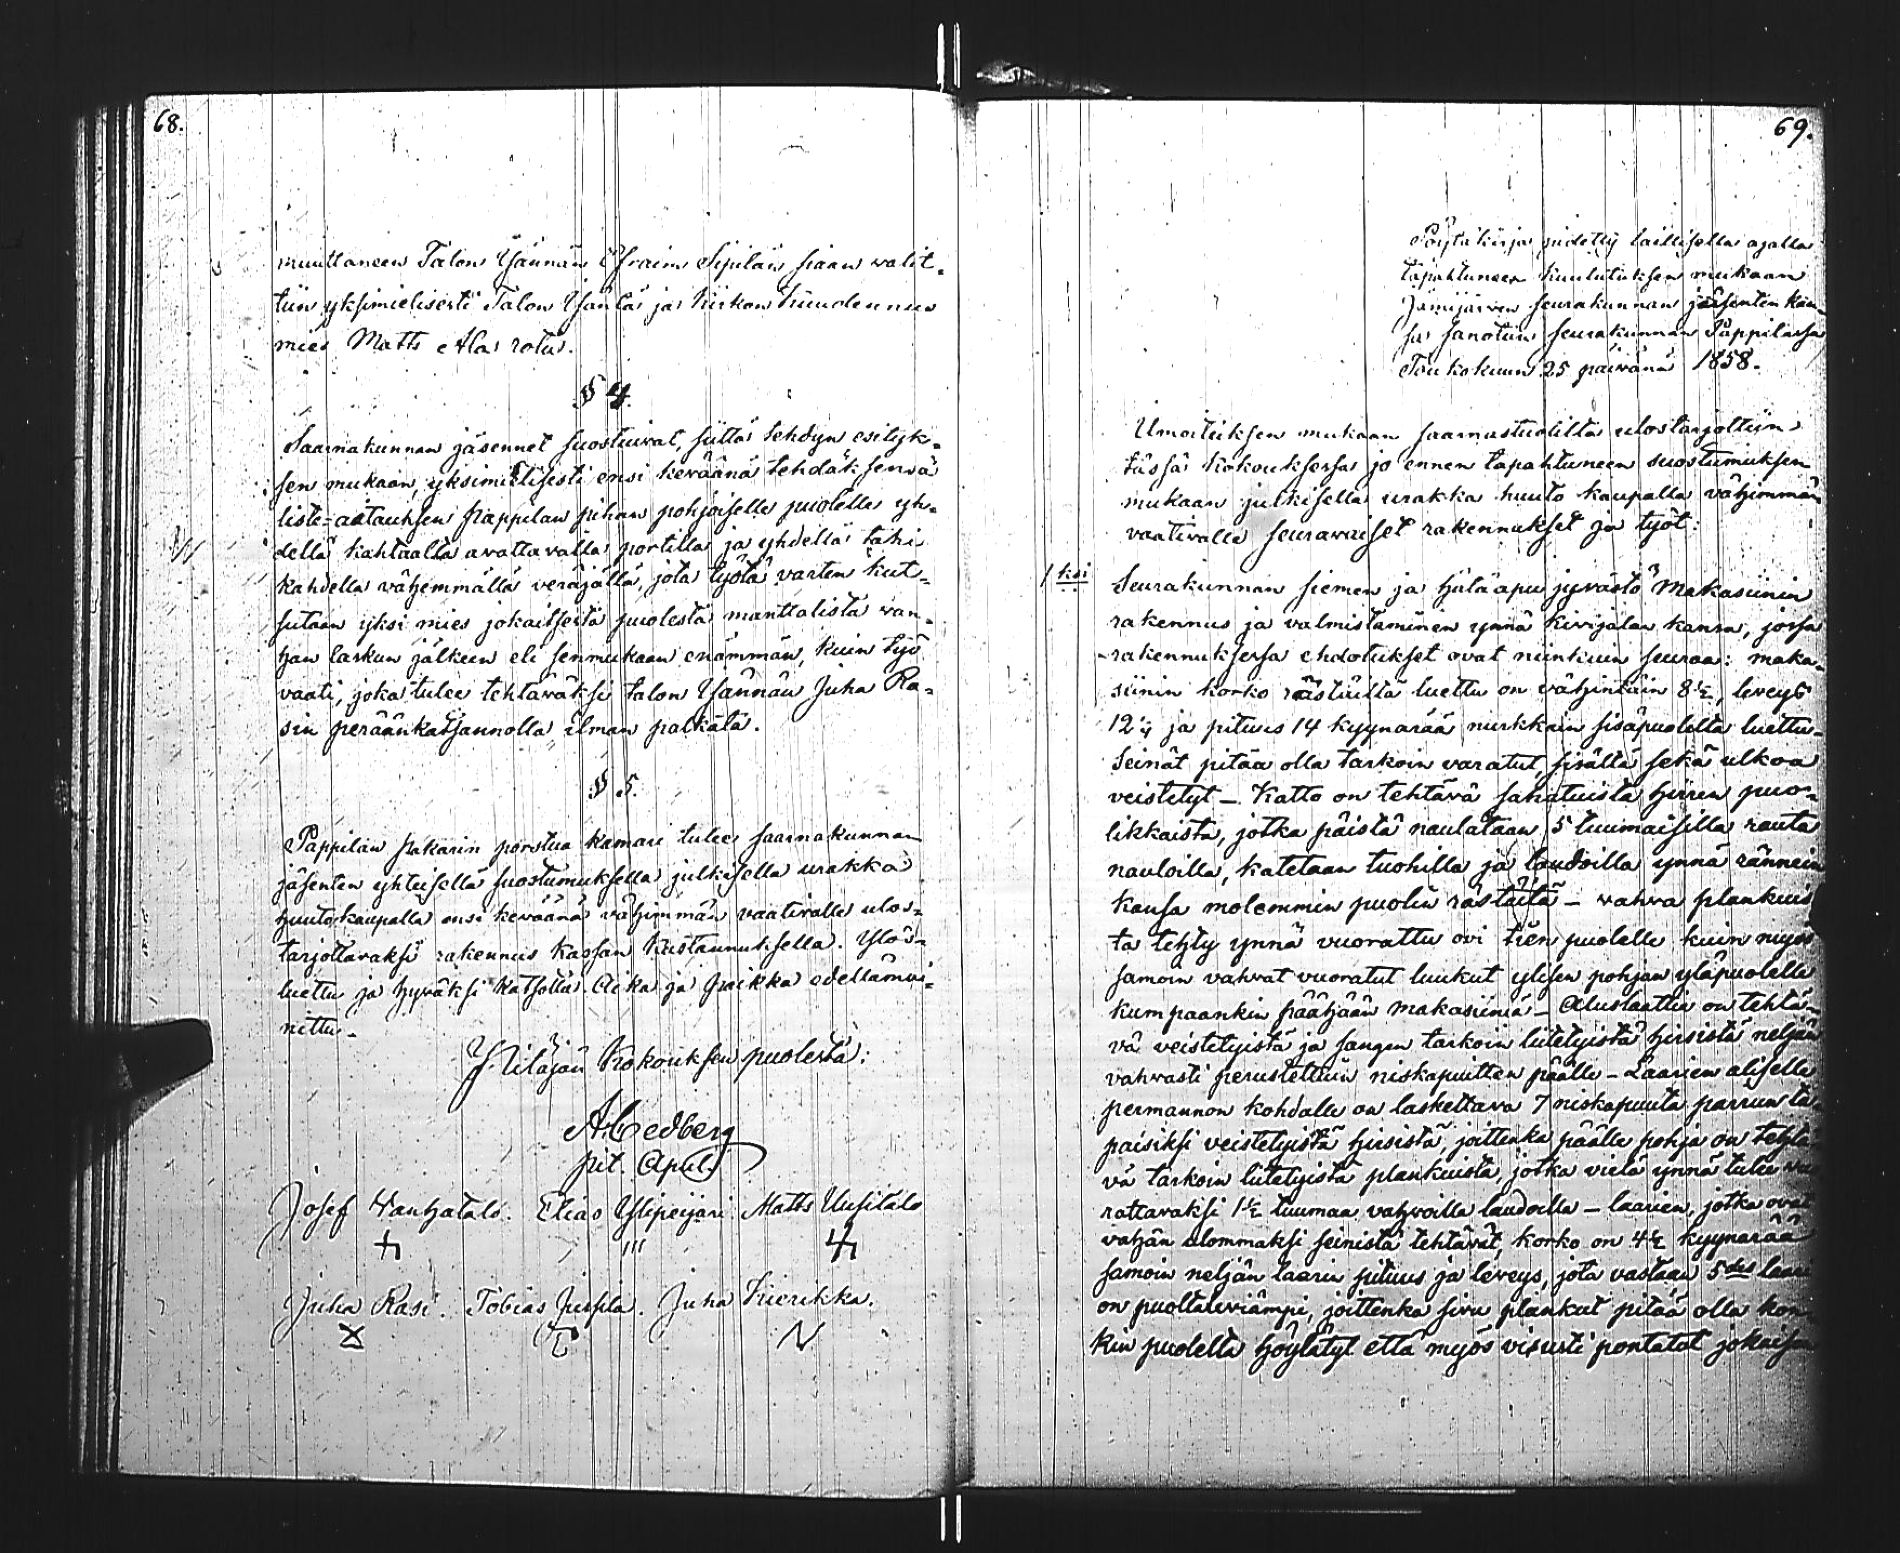 68.
muuttaneen Talon Ysännän Efraim Sipilän siaan walit-
tiin yksimielisesti Talon Ysäntä ja Kirkon kuudennus
mies Matts Ala rotu.
§ 4.
Saarnakunnan jäsennet suostuivat, siittä tehdyn esityk-
sen mukaan, yksimielisesti ensi keväänä tehdäksensä
liste-aitauksen pappilan pihan pohjoiselle puolelle yh-
dellä kahtaalta avattavalla portilla ja yhdellä tahi
kahdella vähemmällä veräjällä, jota työtä varten kut-
sutaan yksi mies jokaitsesta puolesta manttalista wan-
han laskun jälkeen eli senmukaan enämmän, kuin työ
vaati, joka tulee tehtäväksi talon Ysännän Juha Ra-
sin peräänkatsannolla ilman palkata.
§ 5.
Pappilan pakarin porstua kamari tulee saarnakunnan
jäsenten yhteisellä suostumuksella julkisella urakka
huutokaupalla ensi keväänä vähimmän vaativalle ulos-
tarjottavaksi rakennus kassan kustannuksella. Ylös-
luettu ja hyväksi katsottu. Aika ja paikka edellämai-
nittu.
Pitäjän Kokouksen puolesta:
A. Cedberg
pit. Apul.
Josef Wanhatalo. Elias Ylipeijari Matts Uusitalo
Juha Rasi. Tobias Juspla. Juha Kierikka.
69.
Pöytäkirja pidetty laillisella ajalla
tapahtuneen kuulutuksen mukaan
Jämijärven seurakunnan jäsenten kan-
sa sanotun seurakunnan Pappilassa
Toukokuun 25 päivänä 1858.
Ilmoituksen mukaan saarnastuolilta ulostarjottiin
tässä kokouksessa jo ennen tapahtuneen suostumuksen
mukaan julkisella urakka huuto kaupalla vähimmän
vaativalle seuravaiset rakennukset ja työt:
1 ksi
Seurakunnan siemen ja hätäapu jyvästö Makasiinin
rakennus ja valmistaminen ynnä kivijalan kanssa, jossa
rakennuksessa ehdotukset ovat niinkuin seuraa: maka-
siinin korko rästäiltä luettu on vähintäin 8 1/2, leveys
12 1/4 ja pituus 14 kyynärää nurkkain sisäpuolelta luettu-
Seinät pitää olla tarkoin varatut, sisältä sekä ulkoa
veistetyt – Katto on tehtävä sahatuista hirren puo-
likkaista, jotka päistä naulataan 5 tuumaisilla rauta
nauloilla, katetaan tuohilla ja laudoilla ynnä rännein
kansa molemmin puolin rästäitä – vahva plankuis
ta tehty ynnä vuorattu ovi tien puolelle kuin myös
samoin vahvat vuoratut luukut ylisen pohjan yläpuolelle
kumpaankin päähään makasiinia – Aluslattia on tehtä-
vä veistetyistä ja sangen tarkoin liitetyistä hirsistä neljän
vahvasti perustettuin niskapuitten päälle – Laarien aliselle
permannon kohdalle on laskettava 7 niskapuuta parrun ta-
paisiksi veistetyistä hirsistä, joittenka päälle pohja on tehtä-
vä tarkoin liitetyistä plankuista, jotka vielä ynnä tulee vuo
rattavaksi 1 1/2 tuumaa vahvoilla laudoilla – laarien, jotka ovat
vähän ulommaksi seinistä tehtävät, korko on 4 1/2 kyynärää
samoin neljän laarin pituus ja leveys, jota vastaan 5des laari
on puolta leviämpi, joittenka sivu plankut pitää olla kom-
kin puolelta höylätyt että myös visusti pontatut jokaisen